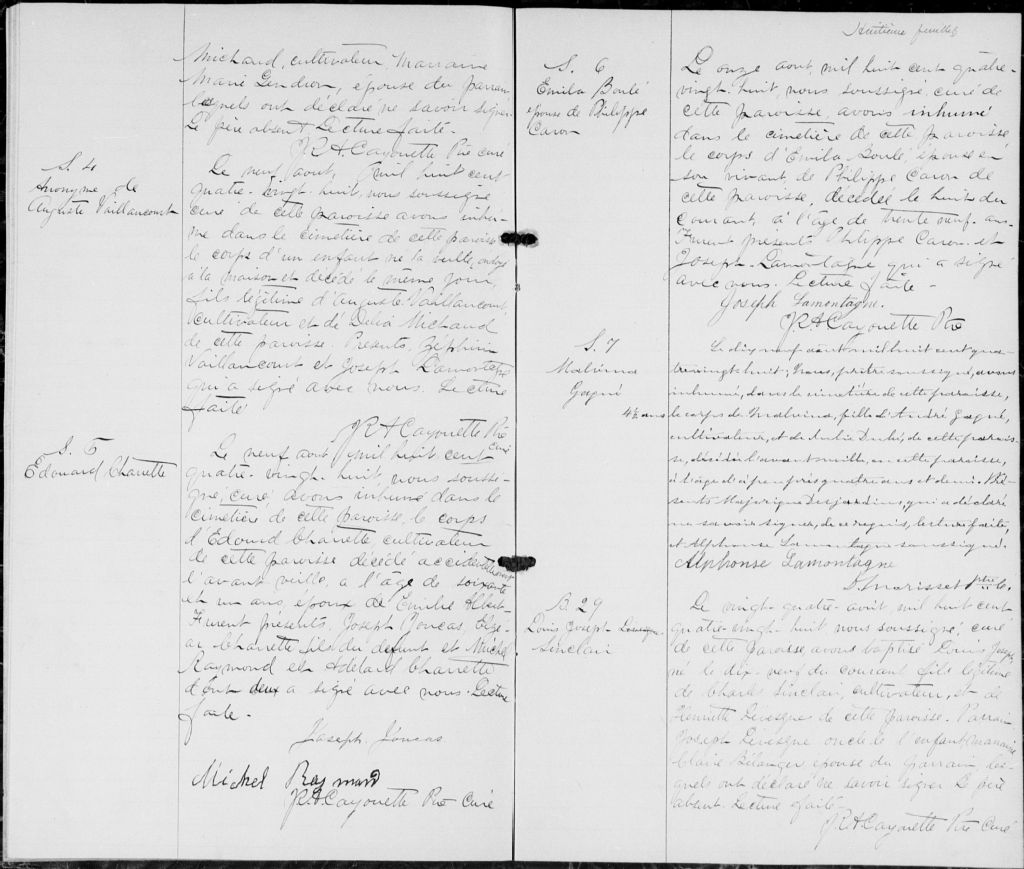 Michaud, cultivateur, Marraine
Marie Gendron, épouse du parrain
lesquels ont déclaré ne savoir signer.
Le père absent, Lecture faite.
JRA Cayouette Ptre curé
S. 4
Anonyme de
Auguste Vaillancourt
Le neuf aout, mil huit cent
quatre-vingt-huit, nous soussigné
curé de cette paroisse avons inhu-
mé dans le cimetière de cette paroisse
le corps d'un enfant né la veille, ondoyé
à la maison et décédé le même jour,
fils légitime d'Auguste Vaillancourt,
cultivateur et de Delia Michaud
de cette paroisse. Presents, Zéphirin
Vaillancourt et Joseph Lamontagne
qui a signé avec nous. Lecture
faite
JRA Cayouette Ptre
Curé
S. 5
Edouard Charette
Le neuf aout mil huit cent
quatre-vingt-huit, nous soussi-
gné, curé avons inhumé dans le
cimetière de cette paroisse, le corps
d'Edouard Charette, cultivateur
de cette paroisse décédé accidentellement
l'avant veille, a l'âge de soixante
et un ans, époux de Emilie Albert
Furent présents, Joseph Joncas, Elzé-
ar Charette fils du defunt et Michel
Raymond et Adelard Charette
dont deux a signé avec nous. Lecture
faite.
Joseph Joncas
Michel Raymond
JRA Cayouette Ptre Curé
Huitième feuillet
S. 6
Emila Boulé
epouse de Philippe
Caron
Le onze aout, mil huit cent quatre-
vingt-huit, nous soussigné, curé de
cette paroisse, avons inhumé
dans le cimetière de cette paroisse
le corps d'Emila Boulé, épouse en
son vivant, de Philippe Caron de
cette paroisse, décédée le huit du
courant, à l'âge de trente neuf ans
Furent présents Philippe Caron et
Joseph Lamontagne qui a signé
avec nous. Lecture faite-
Joseph Lamontagne.
JRA Cayouette Ptre
S. 7
Malvina
Gagné
4½ ans
Le dix neuf aout mil huit cent qua-
trevingt huit; Nous, prêtre soussigné, avons
inhumé, dans le cimetière de cette paroisse,
le corps de Malvina, fille d'André Gagné,
cultivateur, et de Dubé, de cette parois-
se, décédée l'avant veille, en cette paroisse,
à l'âge d'à peu près quatre ans et demi. Pré-
sents Majorique Desjardins, qui a déclaré
ne savoir signer, de ce requis, lecture faite,
et Alphonse Lamontagne soussigné.
Alphonse Lamontagne
D. Morisset Ptre
B. 29
Louis Joseph
Sinclair
Le vingt-quatre août, mil huit cent
quatre-vingt-huit, nous soussigné, curé
de cette paroisse avons baptisé Louis Joseph
né le dix-neuf du courant fils légitime
de Charles Sinclair, cultivateur, et de
Henriette Lévesque de cette paroisse. Parrain
Joseph Lévesque oncle de l'enfant, marraine
Claire Bélanger épouse du parrain, les-
quels ont déclaré ne savoir signer. Le père
absent. Lecture faite-
JRA Cayouette Ptre Curé